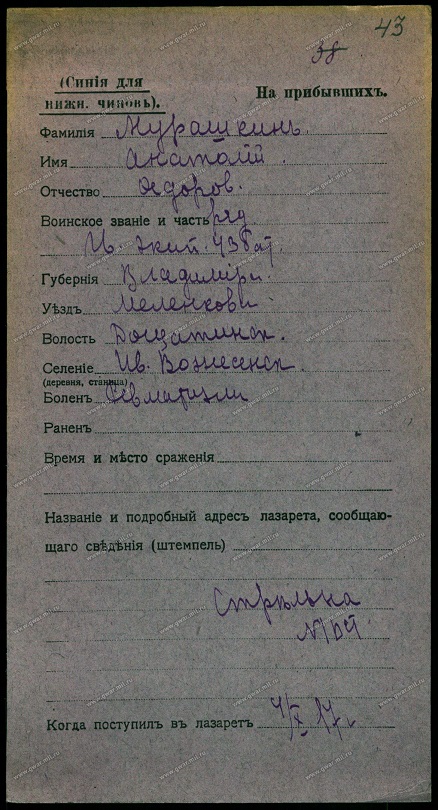 43
38
(Синія для
нижн. чиновъ).
На прибывшихъ.
Фамилія Мурашкинъ.
Имя Анатолій.
Отчество Ѳедоров.
Воинское званіе и часть ряд
43 бат.
Губернія Владимірс.
Уѣздъ Меленкови
Волость Досчатинск.
Селеніе Ив. Вознесенск.
(деревня, станица)
Боленъ Ревматизм
Раненъ
Время и мѣсто сраженія
Названіе и подробный адресъ лазарета, сообщаю-
щаго свѣдѣнія (штемпель)
Стрѣльна
Когда поступилъ въ лазаретъ 4/X 17 г.
www.gwar.mil.ru